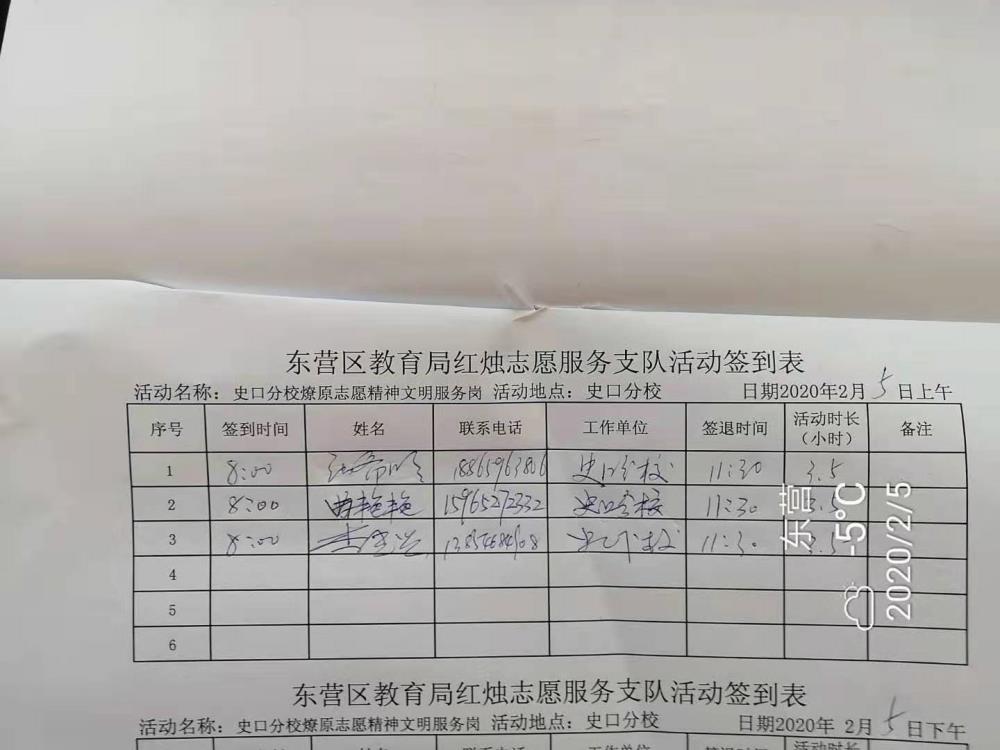 东营区教育局红烛志愿服务支队活动签到表
活动名称：史口分校燎原志愿精神文明服务岗 活动地点：史口分校 日期2020年2月5日上午
序号 签到时间 姓名 联系电话 工作单位 签退时间 活动时长（小时） 备注
1 8:00 史口分校 11:30 3.5
2 8:00 曲艳艳 15965272332 史口分校 11:30 3.5
3 8:00 史口分校 11:30 3.5
4
5
6
东营
-5°C
2020/2/5
东营区教育局红烛志愿服务支队活动签到表
活动名称：史口分校燎原志愿精神文明服务岗 活动地点：史口分校 日期2020年 2月5日下午
签到时间 姓名 联系电话 工作单位 签退时间 活动时长